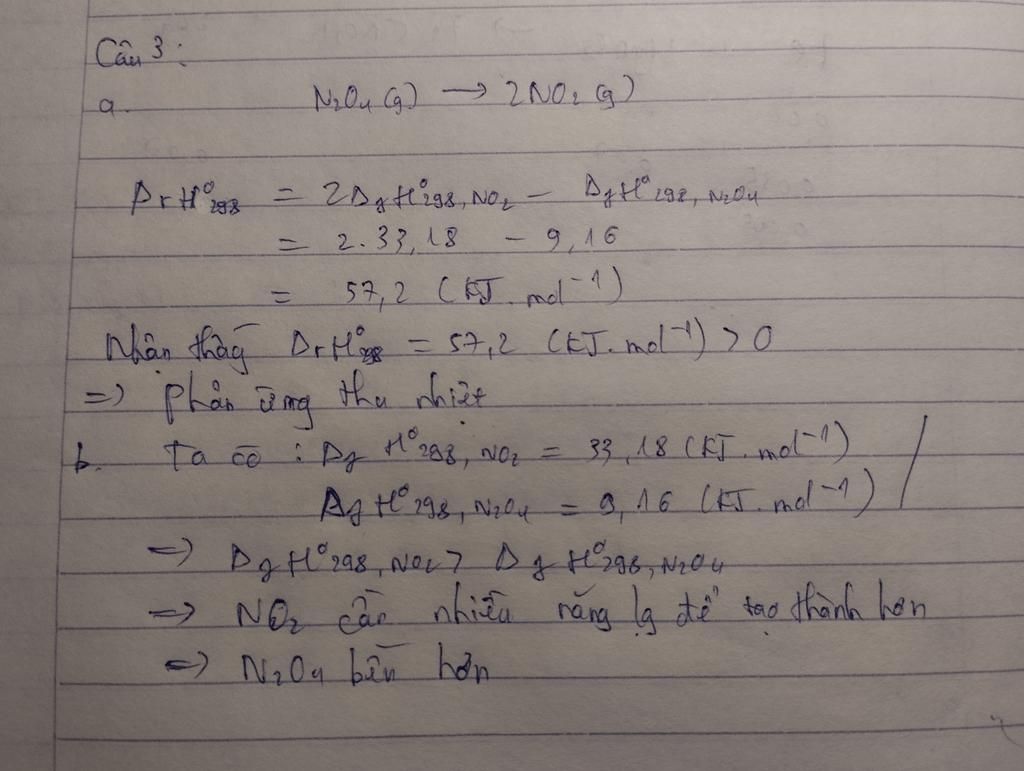 Câu 3:
a. N₂O₄ (g) → 2NO₂ (g)
ΔrH°298 = 2ΔfH°298, NO₂ - ΔfH°298, N₂O₄
= 2.33,18 - 9,16
= 57,2 (kJ.mol⁻¹)
Nhận thấy ΔrH°298 = 57,2 (kJ.mol⁻¹) > 0
=> phản ứng thu nhiệt
b. Ta có : ΔfH°298, NO₂ = 33,18 (kJ.mol⁻¹)
ΔfH°298, N₂O₄ = 9,16 (kJ.mol⁻¹)
=> ΔfH°298, NO₂ > ΔfH°298, N₂O₄
=> NO₂ cần nhiều năng lg để tạo thành hơn
=> N₂O₄ bền hơn